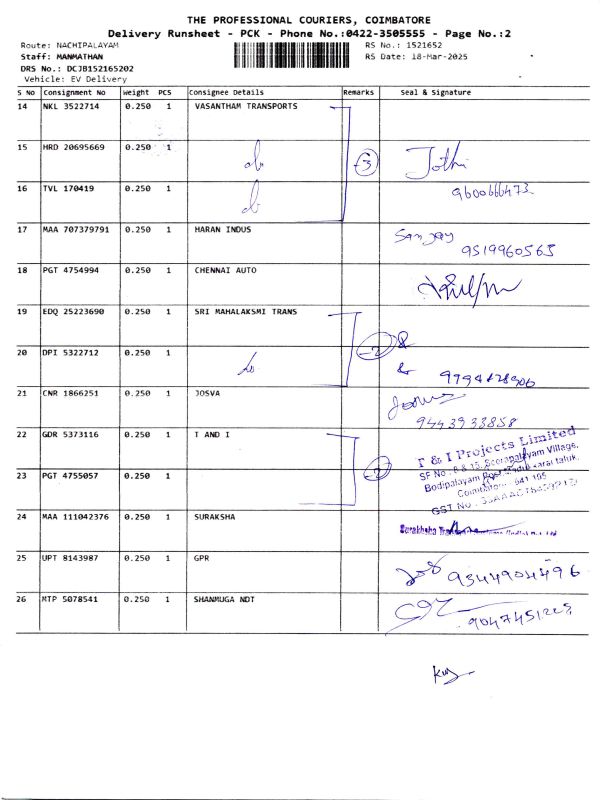 THE PROFESSIONAL COURIERS, COIMBATORE
Delivery Runsheet - PCK - Phone No.:0422-3505555 - Page No.:2
Route: NACHIPALAYAM RS No.: 1521652
Staff: MANMATHAN RS Date: 18-Mar-2025
DRS No.: DCJB152165202
Vehicle: EV Delivery
S No Consignment No Weight PCS Consignee Details Remarks Seal & Signature
14 NKL 3522714 0.250 1 VASANTHAM TRANSPORTS
15 HRD 20695669 0.250 1 do -3 Jothi
16 TVL 170419 0.250 1 do 9600666473
17 MAA 707379791 0.250 1 HARAN INDUS Sanjay
9519960565
18 PGT 4754994 0.250 1 CHENNAI AUTO
19 EDQ 25223690 0.250 1 SRI MAHALAKSMI TRANS
20 DPI 5322712 0.250 1 do -2
21 CNR 1866251 0.250 1 JOSVA
9443933858
22 GDR 5373116 0.250 1 T AND I
23 PGT 4755057 0.250 1 -2
Projects Limited
Village,
Bodipalayam Post
Coimbatore - 641 105
GST No
24 MAA 111042376 0.250 1 SURAKSHA
25 UPT 8143987 0.250 1 GPR 9344904496
26 MTP 5078541 0.250 1 SHANMUGA NDT